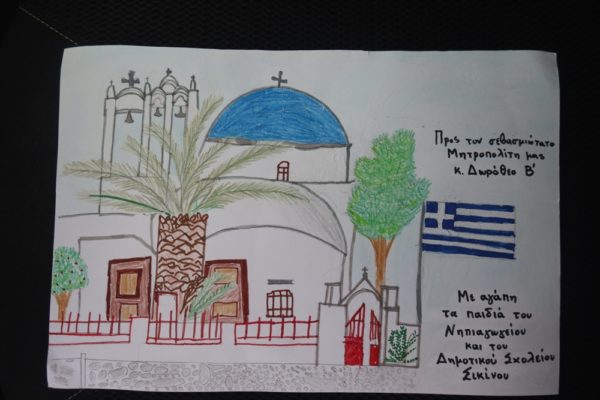 Προς τον σεβασμιώτατο
Μητροπολίτη μας
κ. Δωρόθεο Β'
Με αγάπη
τα παιδιά του
Νηπιαγωγείου
και του
Δημοτικού Σχολείου
Σικίνου